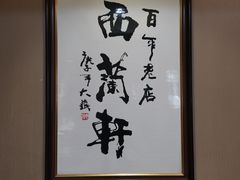 百年老店
西蘭軒